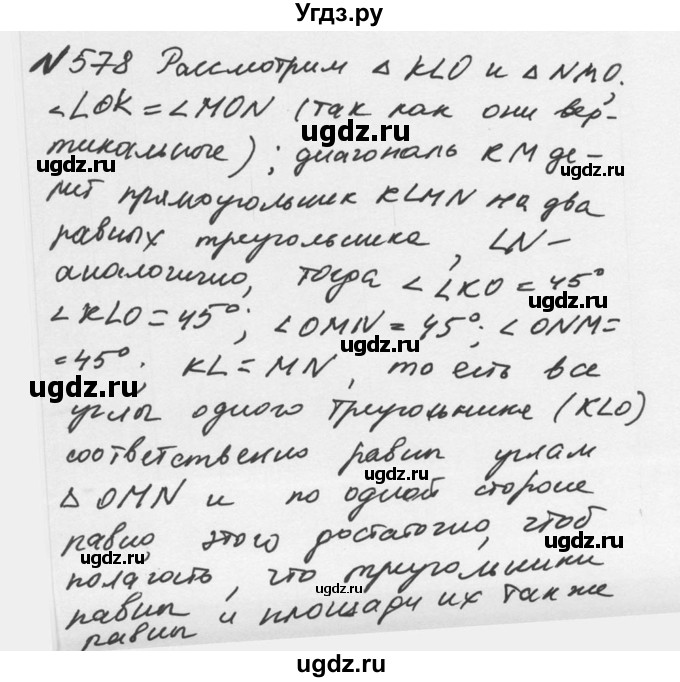 Угдз.ру
№578 Рассмотрим △ KLO и △ NMO,
∠LOK = ∠MON (так как они вер-
ugdz.ru
тикальные); диагональ KM де-
ugdz.ru
лит прямоугольник KLMN на два
равных треугольника, LN –
аналогично, тогда ∠LKO = 45°
ugdz.ru
∠KLO = 45°; ∠OMN = 45°; ∠ONM =
ugdz.ru
= 45°. KL = MN, то есть все
ugdz.ru
углы одного треугольнике (KLO)
соответственно равны углам
ugdz.ru
△ OMN и по одной стороне
равно этого достаточно, чтоб
ugdz.ru
ugdz.ru
полагать, что треугольники
равны и площади их также
равны
ugdz.ru